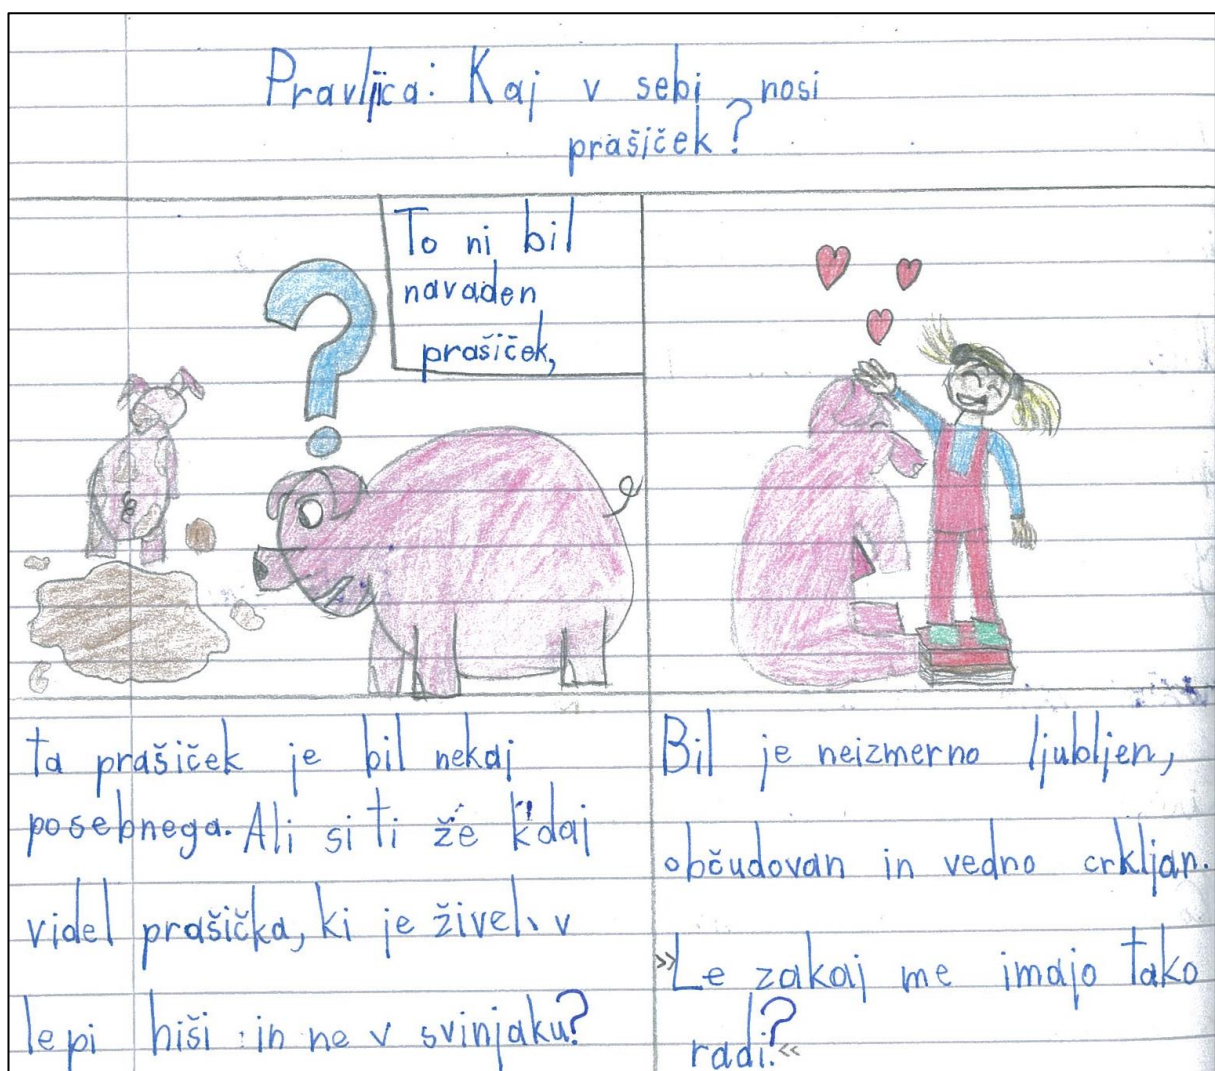 Pravljica: Kaj v sebi nosi
prašiček?
To ni bil
navaden
prašiček,
ta prašiček je bil nekaj
posebnega. Ali si ti že kdaj
videl prašička, ki je živel v
lepi hiši in ne v svinjaku?
Bil je neizmerno ljubljen,
občudovan in vedno crkljan.
»Le zakaj me imajo tako
radi?«